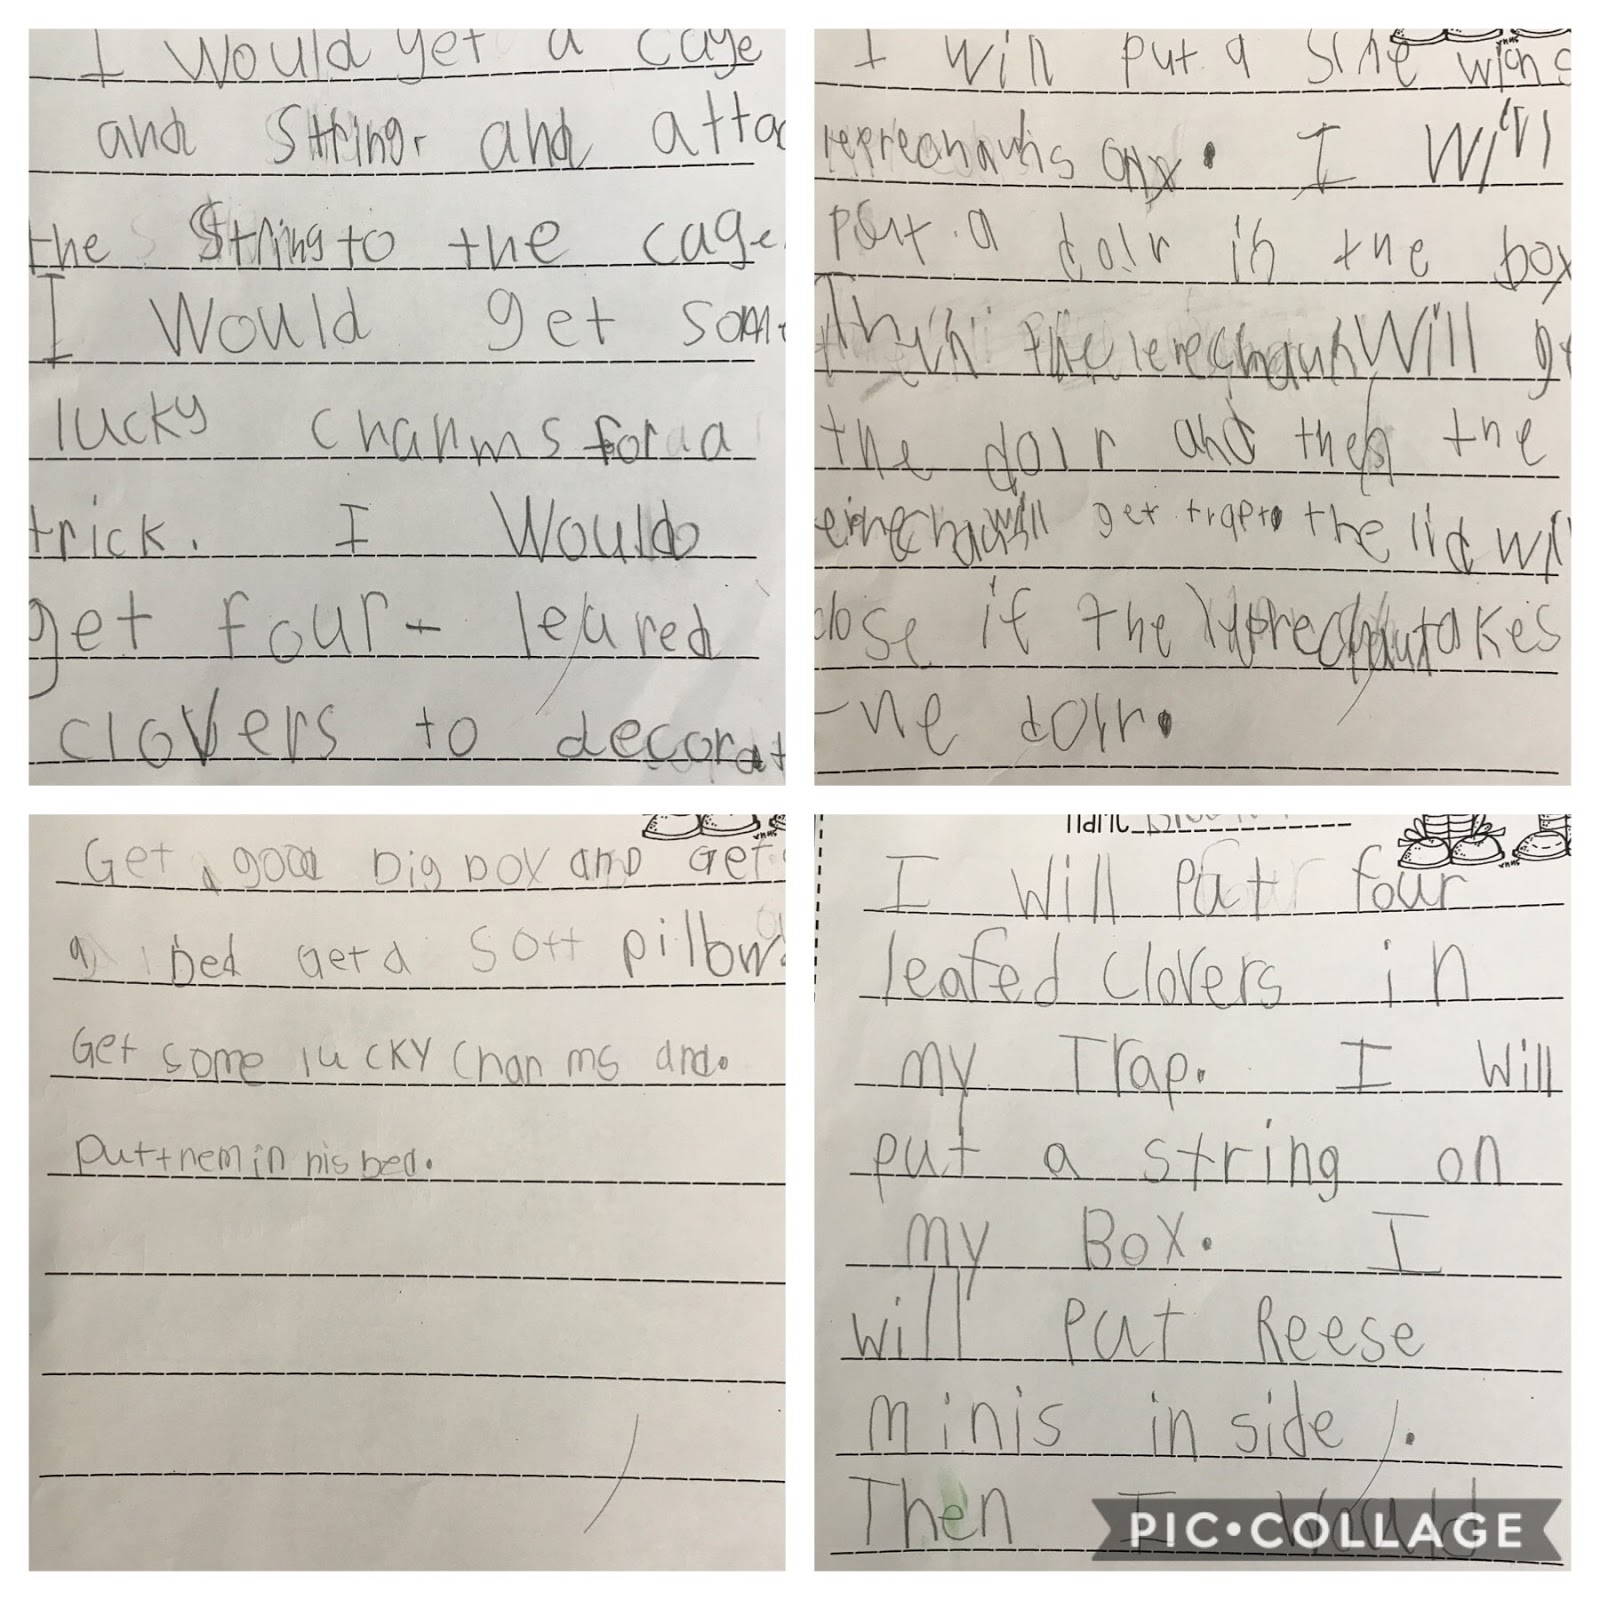 I Would get a cage
and String. and atta
the String to the cage.
I Would get som
lucky charms for a
trick. I Would
get four-
clovers to decorat
I will put a
only. I Will
put a doir in the box
the Will
the doir and then the
will get trapt the lid wil
close if the takes
doirr.
Get a good big box and Get
a bed Get a soft pillow
Get some lucky Charms and.
Put them in his bed.
Name
I Will Put four
leafed Clovers in
my Trap. I Will
put a string on
my Box. I
will Put Reese
minis in side.
Then I Would
PIC•COLLAGE